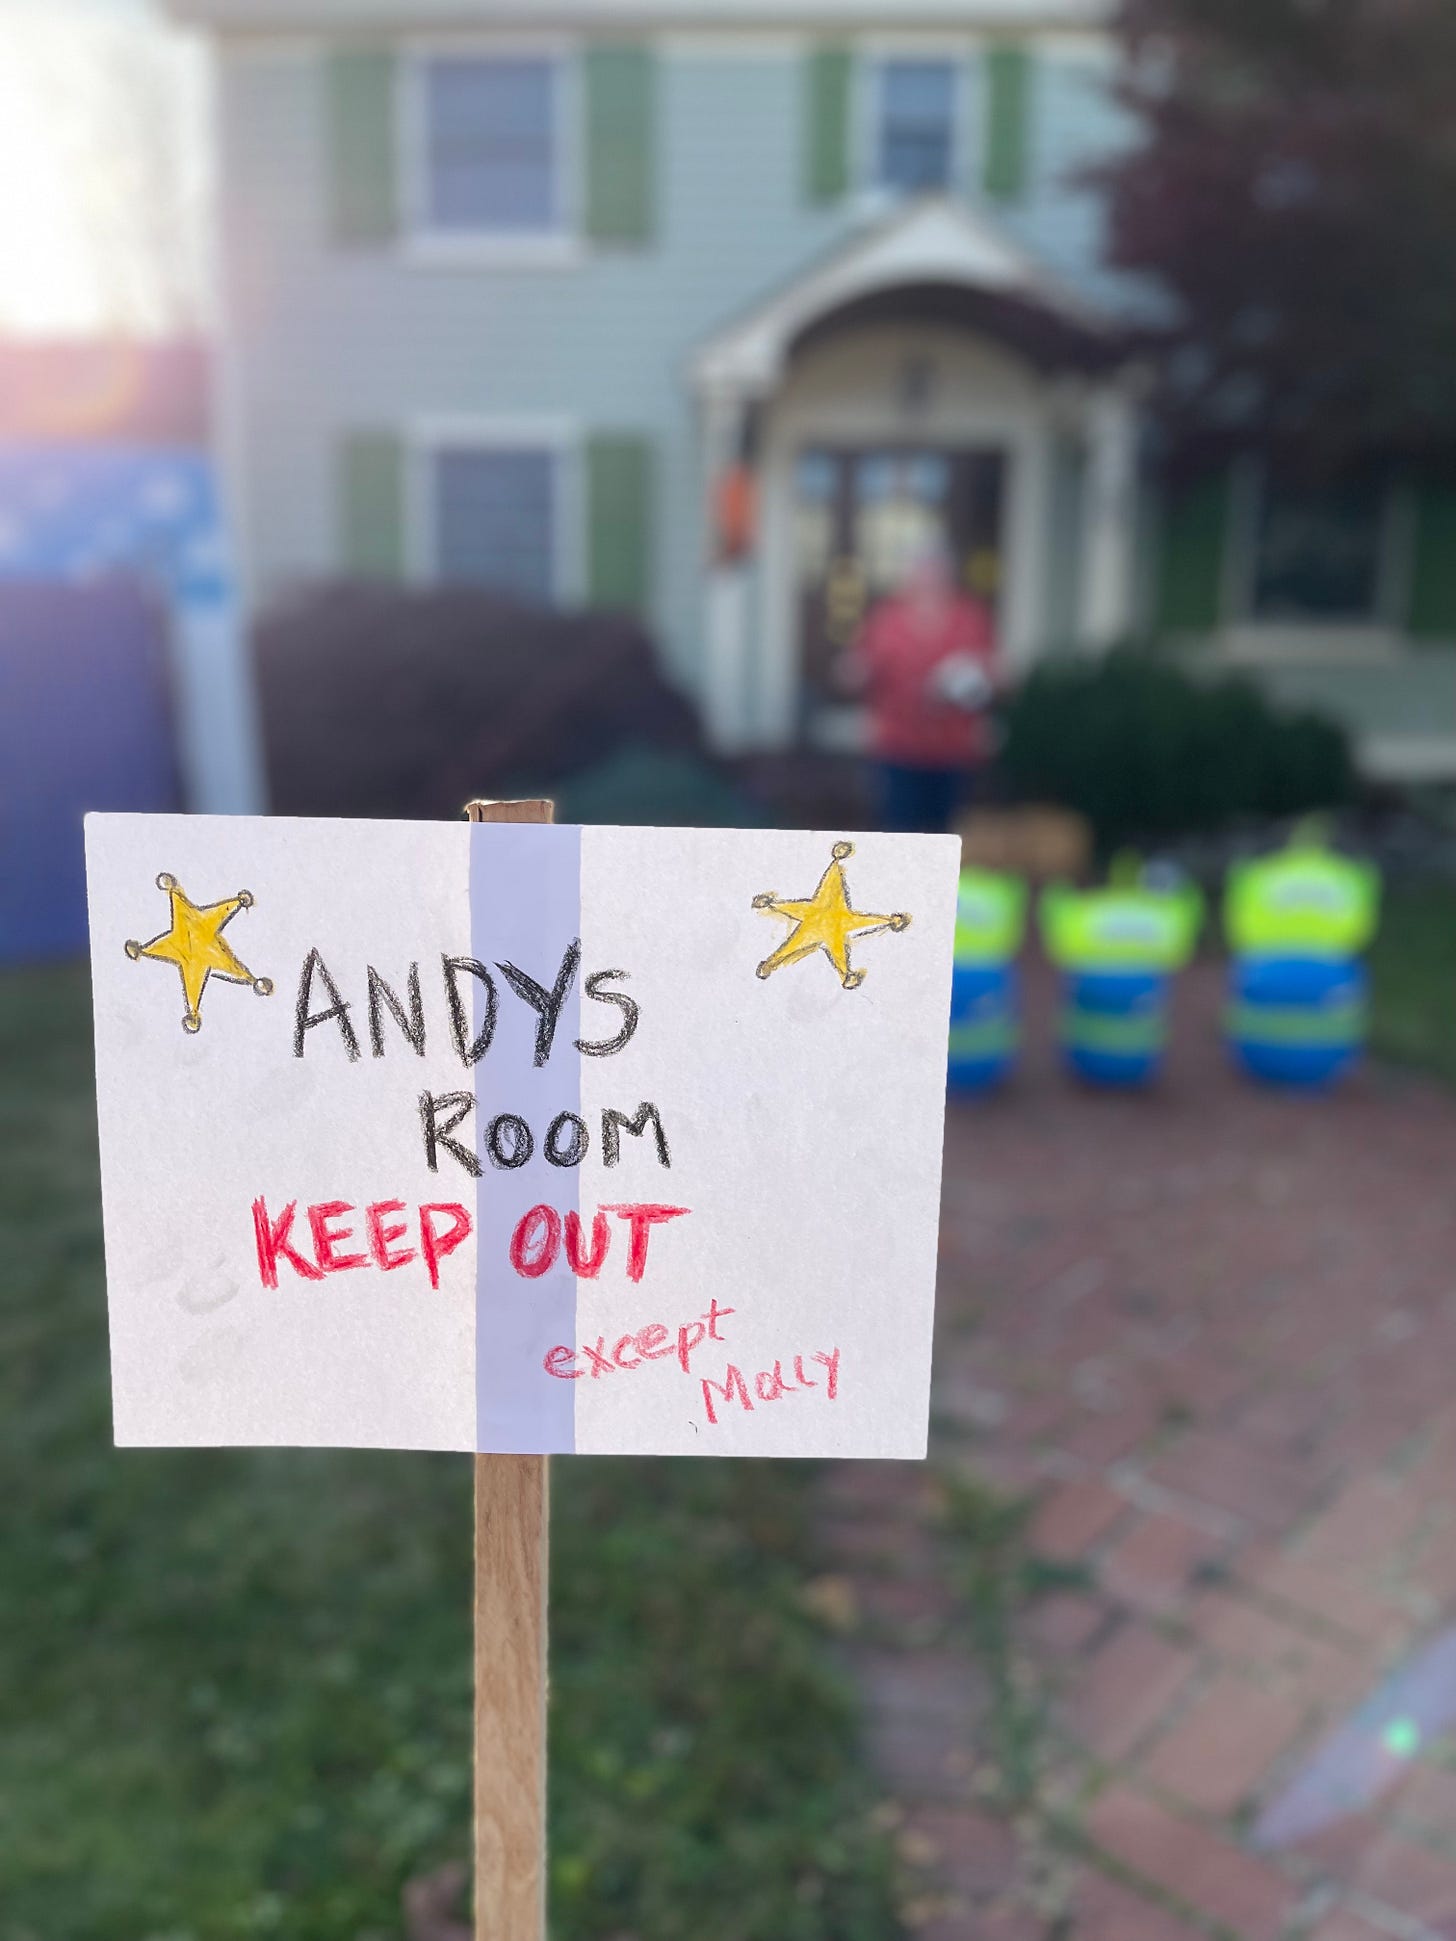 ANDYS
ROOM
KEEP OUT
except
Molly